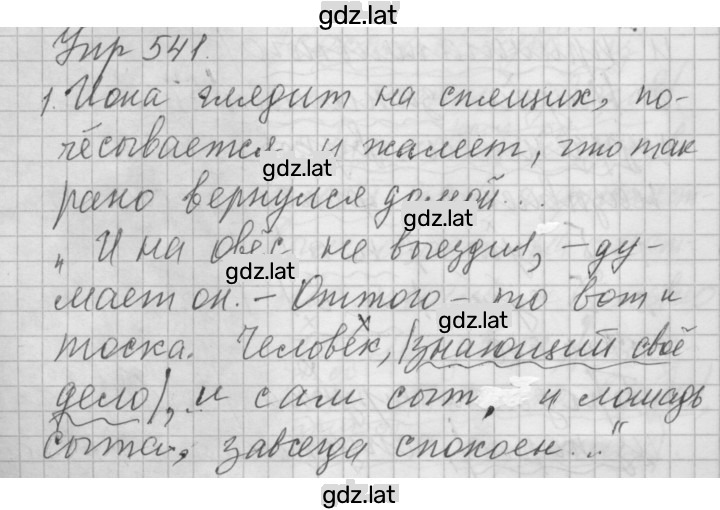 gdz.lat
Упр 541.
1. Иона глядит на спящих, по-
чёсывается и жалеет, что так
gdz.lat
рано вернулся домой...
gdz.lat
„И на овёс не выездил, – ду-
gdz.lat
мает он. – Оттого-то вот и
gdz.lat
тоска. Человек, |знающий своё
дело|, и сам сыт, и лошадь
сыта, завсегда спокоен..."
gdz.lat